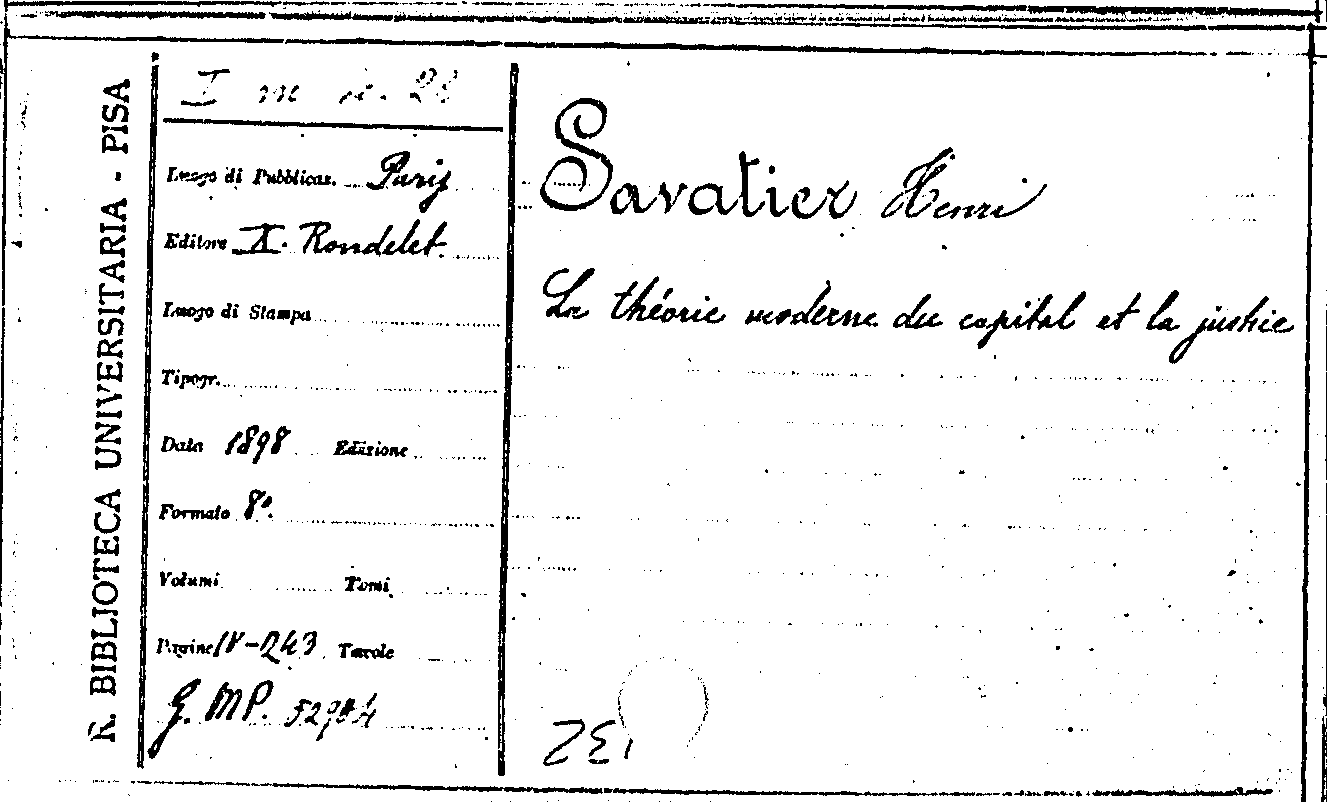 R. BIBLIOTECA UNIVERSITARIA - PISA
I m 28
Luogo di Pubblicaz. Paris
Editore X. Rondelet.
Luogo di Stampa
Tipogr.
Data 1898 Edizione
Formato 8°.
Volumi Tomi
Pagine IV-243 Tavole
G. MP. 52904
Savatier Henri
La théorie moderne du capital et la justice